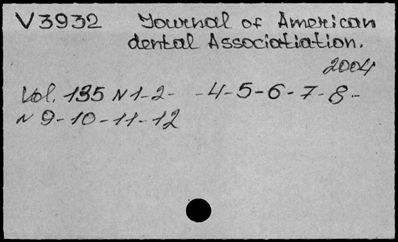 V3932 Journal of American
dental Associatiation.
2004
Vol. 135 N 1-2- -4-5-6-7-8-
N 9-10-11-12